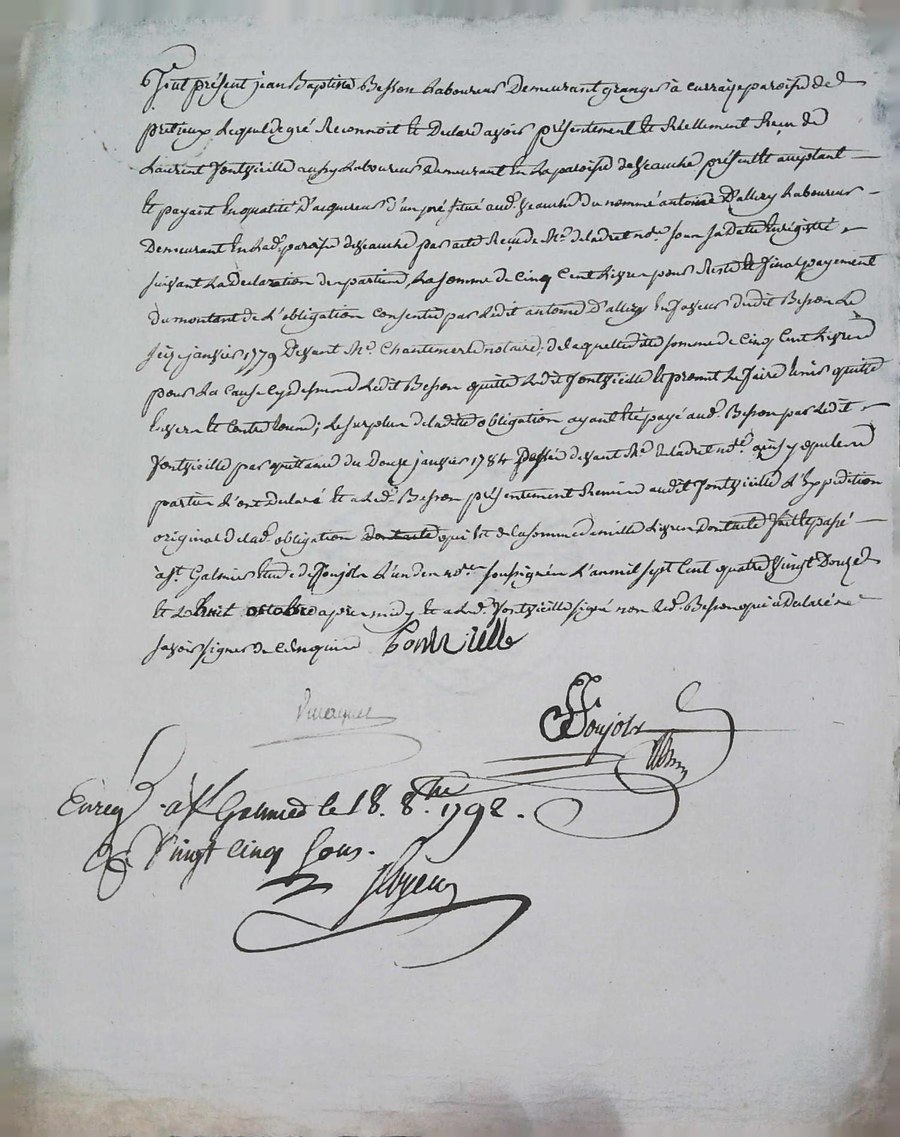 Fut présent jean Baptiste Besson Laboureur Demeurant granger à curraize paroisse de
précieux Lequel de gré Reconnoit et Declare avoir présentement et Réellement Reçu de
Laurent fontvieille aussy Laboureur demeurant En La paroisse de Veauche présent et acceptant
Et payant En qualité D'acquereur d'un pré situé aud. Veauche du nommé antoine D'allery Laboureur
Demeurant En Lad. paroisse de Veauche par acte Reçu de Me. deladret nore. sous sa Date Enregistré
suivant La Declaration des parties, La somme de Cinq Cent Livres pour Reste et final payement
Du montant de L'obligation consentie par Ledit antoine D'allery En faveur dudit Besson Le
seize janvier 1779 Devant Me. Chantemerle notaire; de laquelle ditte somme de Cinq Cent Livres
pour La Cause Cy dessus Ledit Besson quitte Ledit fontvieille Et promet Le faire tenir quitte
Envers Et Contre tous; Le surplus de ladite obligation ayant Eté payé aud. Besson par Ledit
fontvieille par quittance du Douze janvier 1784 passée devant Me. deladret nore. ainsy que les
parties L'ont Declaré Et a Led. Besson présentement Remis audit fontvieille L'Expédition
original de lad. obligation dont acte qui Est de la somme de mille Livres Dont acte fait Et passé
à st. Galmier Etude de Soujols L'un des nores. soussignés L'an mil sept Cent quatre Vingt Douze
Et Le huit octobre après midy Et a Led. fontvieille signé non Led. Besson qui a Déclaré ne
savoir signer de ce Enquis fontvielle
Soujols
Enreg. à st Galmier le 18. 8bre 1792.
R. Vingt cinq sous.